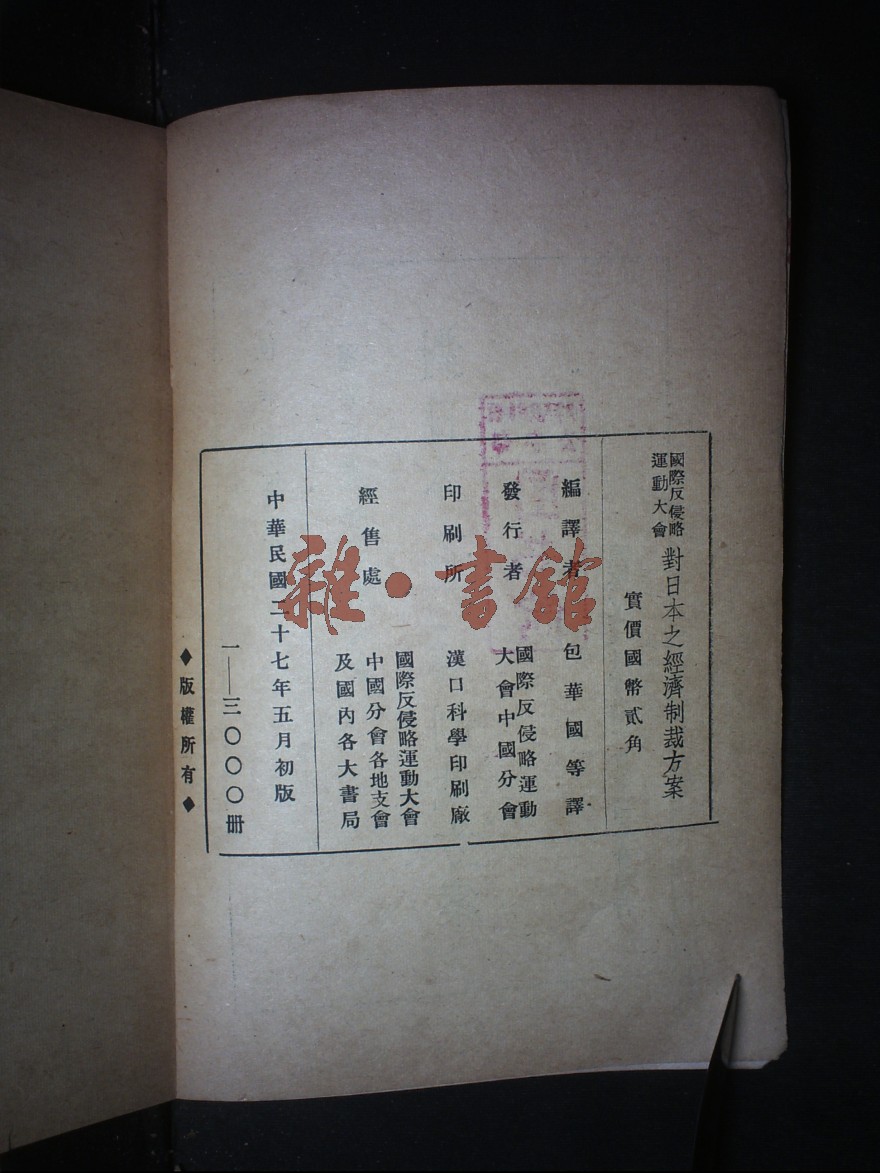 國際反侵略
運動大會
對日本之經濟制裁方案
實價國幣貳角
編譯者 包華國等譯
發行者 國際反侵略運動
大會中國分會
印刷所 漢口科學印刷廠
經售處 國際反侵略運動大會
中國分會各地支會
及國內各大書局
中華民國二十七年五月初版
一—三〇〇〇冊
◆版權所有◆
雜·書館